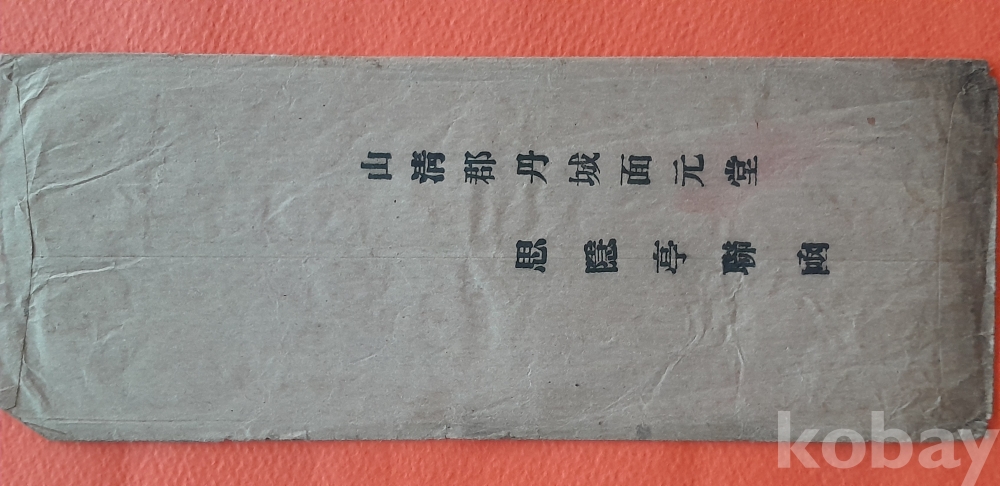 山淸郡丹城面元堂
思隱亭聯圅
kobay